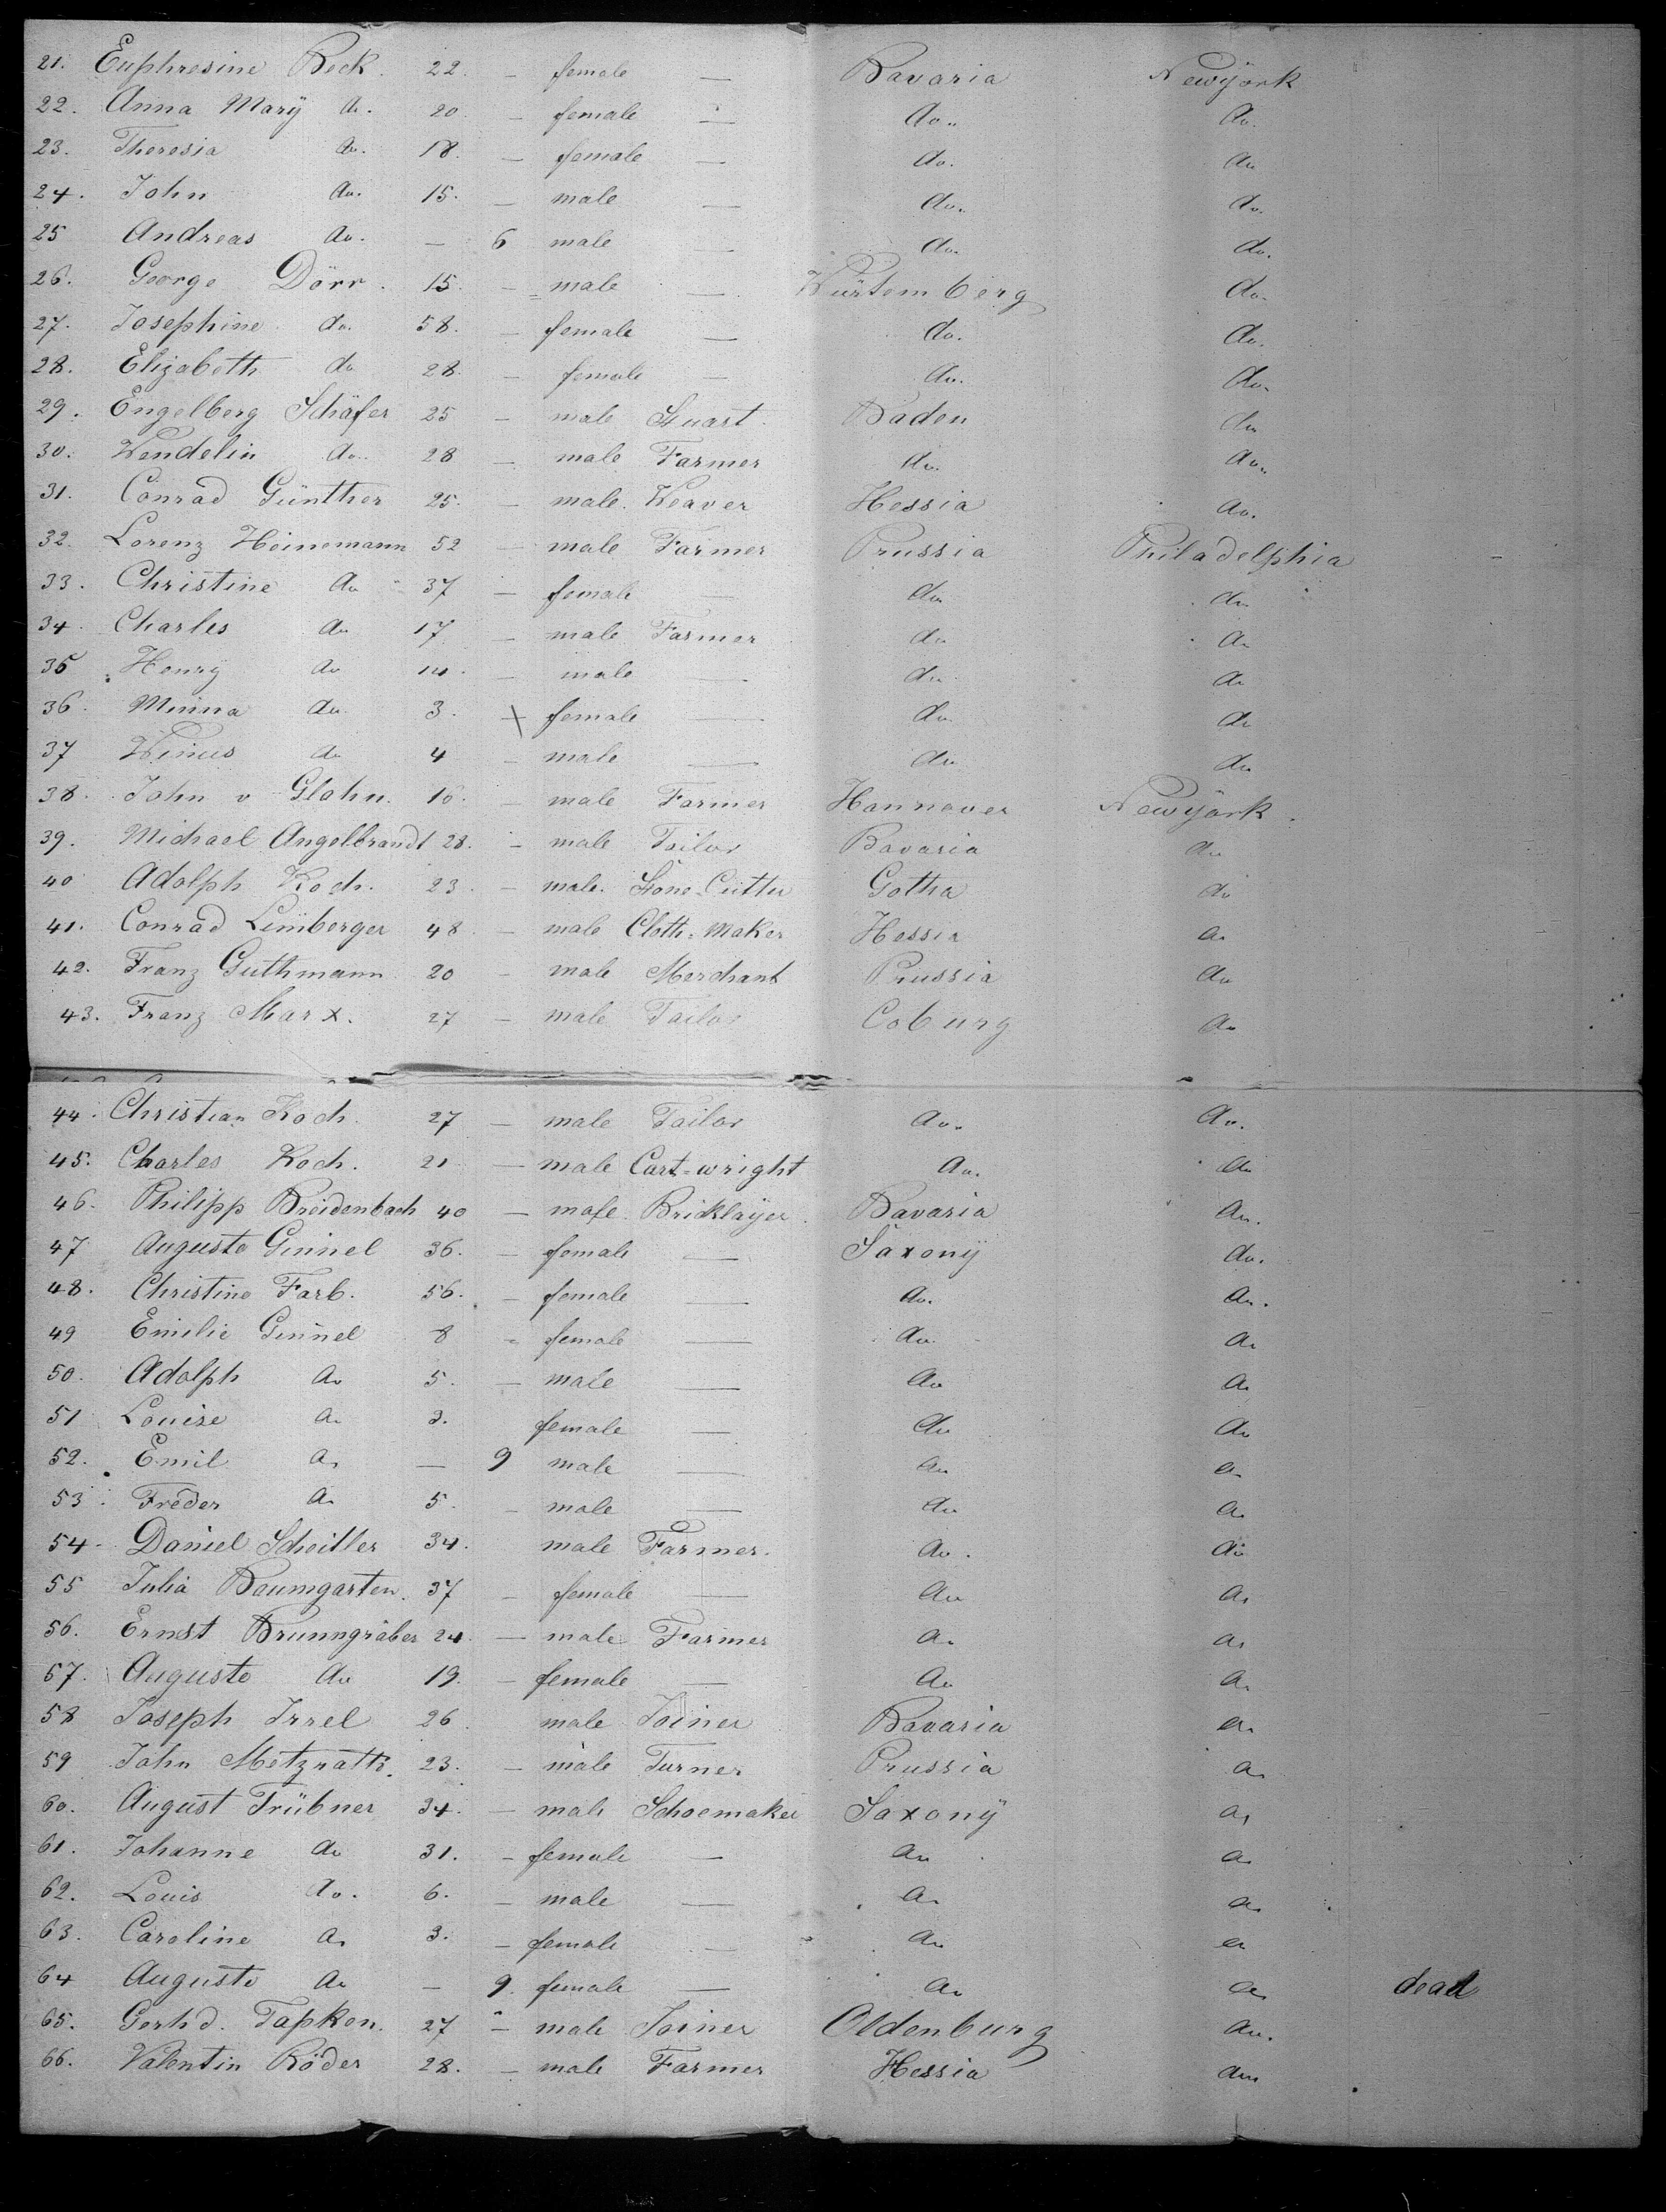 21. Euphresine Beck. 22. - female — Bavaria Newÿork
22. Anna Marÿ do. 20. - female — do. do.
23. Theresia do. 18. - female — do. do
24. John do. 15. - male — do. do.
25 Andreas do. — 6 male — do. do.
26. George Dörr. 15. - male — Würtemberg do.
27. Josephine do. 58. - female — do. do.
28. Elizabeth do 28. - female — do. do.
29. Engelberg Schäfer 25 - male Baden do
30. Wendelin do. 28 - male Farmer do. do.
31. Conrad Günther 25. - male. Weaver Hessia do.
32. Lorenz Heinemann 52 - male Farmer Prussia Philadelphia
33. Christine do 37 - female — do do
34. Charles do 17 - male Farmer do do
35 Henrÿ do 14. - male — do do
36. Minna do 3. - female — do. do
37 do 4 - male — do do
38. John v Glahn. 16. - male Farmer Hannover Newÿork.
39. Michael Angelbrandt 28. - male Tailor Bavaria do
40 Adolph Koch. 23 - male. Stone-Cutter Gotha do
41. Conrad Limberger 48 - male Cloth-Maker Hessia do
42. Franz Guthmann 20 - male Merchant Prussia do
43. Franz Marx. 27 - male Tailor Coburg do
44. Christian Koch. 27 - male Tailor do. do.
45. Charles Koch. 21 - male Cart-wright do. do
46. Philipp Breidenbach 40 - male. Bricklayer. Bavaria do.
47 Auguste Ginnel 36. - female — Saxonÿ do.
48. Christine Farb. 56. - female — do. do.
49 Emilie Ginnel 8 - female — do. do
50. Adolph do 5. - male — do do
51 Louise do 3. female — do do
52. Emil do — 9 male — do do
53. Freder do 5. - male — do do
54. Daniel Scheitler 34. male Farmer. do. do
55 Julia Baumgarten. 37 - female — do do
56. Ernst Brunngräber 24. - male Farmer do do
57. Auguste do 19. - female — do do
58 Joseph Irrel 26. male Joiner Bavaria do
59 John Metzrath. 23. - male Turner Prussia do
60. August Trübner 34. - male Schoemaker Saxonÿ do
61. Johanne do 31. - female — do do
62. Louis do. 6. - male — do do
63. Caroline do 3. - female — do do
64 Auguste do — 9. female — do do dead
65. Gerhd. Tapken. 27 - male Joiner Oldenburg do.
66. Valentin Röder 28. - male Farmer Hessia do